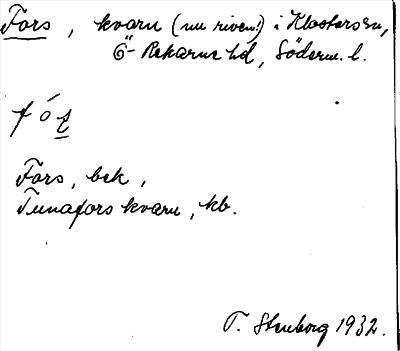 Fors, kvarn (nu riven!) i Klosters sn,
Ö-Rekarne hd, Söderm. l.
fóṣ
Fors, bek,
Tunafors kvarn, kb.
T. Stenborg 1932.